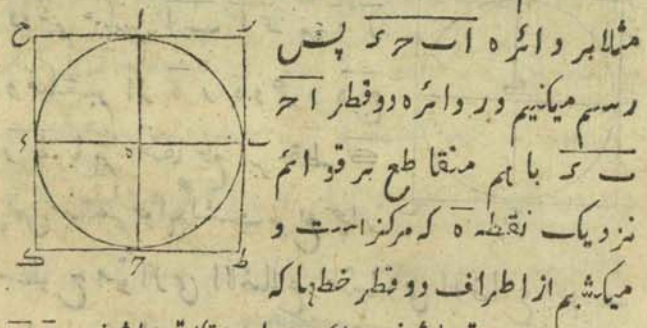 مثلا بر دائره ا ب ح ء پس
رسم میکنیم در دائره دو قطر ا ح
ب ء با هم متقاطع بر قوائم
نزدیک نقطه ه که مرکز است و
میکشیم از اطراف دو قطر خطها که
ح ا ر
ء ه ب
ک ح ط